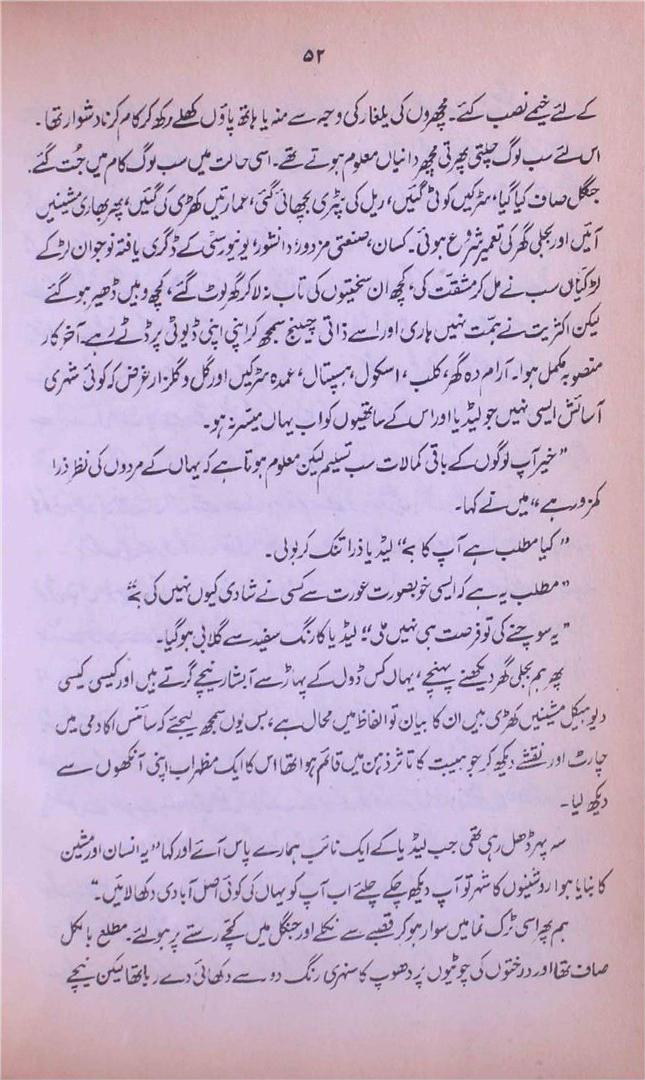 ۵۲
کے لئے خیمے نصب کئے۔ مچھروں کی یلغار کی وجہ سے منہ یا ہاتھ پاؤں کھلے رکھ کر کام کرنا دشوار تھا۔
اس لئے سب لوگ چلتی پھرتی مچھر دانیاں معلوم ہوتے تھے۔ اسی حالت میں سب لوگ کام میں جُت گئے۔
جنگل صاف کیا گیا، سڑکیں کوٹی گئیں، ریل کی پٹری بچھائی گئی، عمارتیں کھڑی کی گئیں، پھر بھاری مشینیں
آئیں اور بجلی گھر کی تعمیر شروع ہوئی۔ کسان، صنعتی مزدور، دانشور، یونیورسٹی کے ڈگری یافتہ نوجوان لڑکے
لڑکیاں سب نے مل کر مشقت کی، کچھ ان سختیوں کی تاب نہ لا کر گھر لوٹ گئے، کچھ وہیں ڈھیر ہو گئے
لیکن اکثریت نے ہمت نہیں ہاری اور اسے ذاتی چیلنج سمجھ کر اپنی اپنی ڈیوٹی پر ڈٹے رہے۔ آخر کار
منصوبہ مکمل ہوا۔ آرام دہ گھر، کلب، اسکول، ہسپتال، عمدہ سڑکیں اور گل و گلزار غرض کہ کوئی شہری
آسائش ایسی نہیں جو لیڈیا اور اس کے ساتھیوں کو اب یہاں میسّر نہ ہو۔
”خیر آپ لوگوں کے باقی کمالات سب تسلیم لیکن معلوم ہوتا ہے کہ یہاں کے مردوں کی نظر ذرا
کمزور ہے“ میں نے کہا۔
”کیا مطلب ہے آپ کا؟“ لیڈیا ذرا تنک کر بولی۔
”مطلب یہ ہے کہ ایسی خوبصورت عورت سے کسی نے شادی کیوں نہیں کی؟“
”یہ سوچنے کی تو فرصت ہی نہیں ملی“ لیڈیا کا رنگ سفید سے گلابی ہو گیا۔
پھر ہم بجلی گھر دیکھنے پہنچے، یہاں کس ڈول کے پہاڑ سے آبشار نیچے گرتے ہیں اور کیسی کیسی
دیو ہیکل مشینیں کھڑی ہیں ان کا بیان تو الفاظ میں محال ہے، بس یوں سمجھ لیجئے کہ سائنس اکادمی میں
چارٹ اور نقشے دیکھ کر جو ہیبت کا تاثر ذہن میں قائم ہوا تھا اس کا ایک مظہر اب اپنی آنکھوں سے
دیکھ لیا۔
سہ پہر ڈھل رہی تھی جب لیڈیا کے ایک نائب ہمارے پاس آئے اور کہا ”یہ انسان اور مشین
کا بنایا ہوا روشنیوں کا شہر تو آپ دیکھ چکے چلئے اب آپ کو یہاں کی کوئی اصل آبادی دکھا لائیں۔“
ہم پھر اسی ٹرک نما میں سوار ہو کر قصبے سے نکلے اور جنگل میں کچے رستے پر ہو لئے۔ مطلع بالکل
صاف تھا اور درختوں کی چوٹیوں پر دھوپ کا سنہری رنگ دور سے دکھائی دے رہا تھا لیکن نیچے